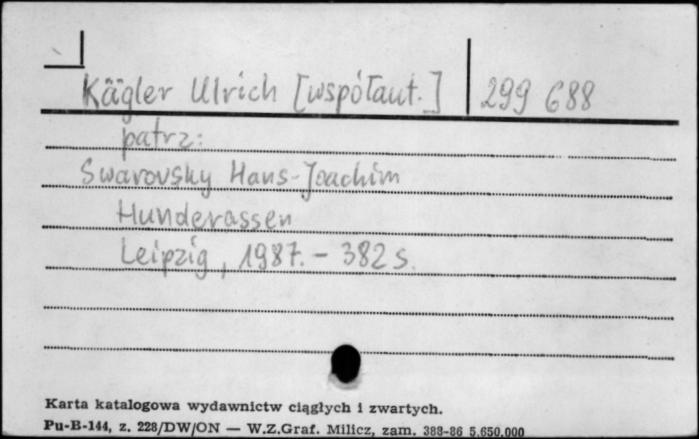 Kägler Ulrich [współaut.] 299 688
patrz:
Swarovsky Hans-Joachim
Hunderassen
Leipzig, 1987. - 382 s.
Karta katalogowa wydawnictw ciągłych i zwartych.
Pu-B-144, z. 228/DW/ON — W.Z.Graf. Milicz, zam. 388-86 5.650.000